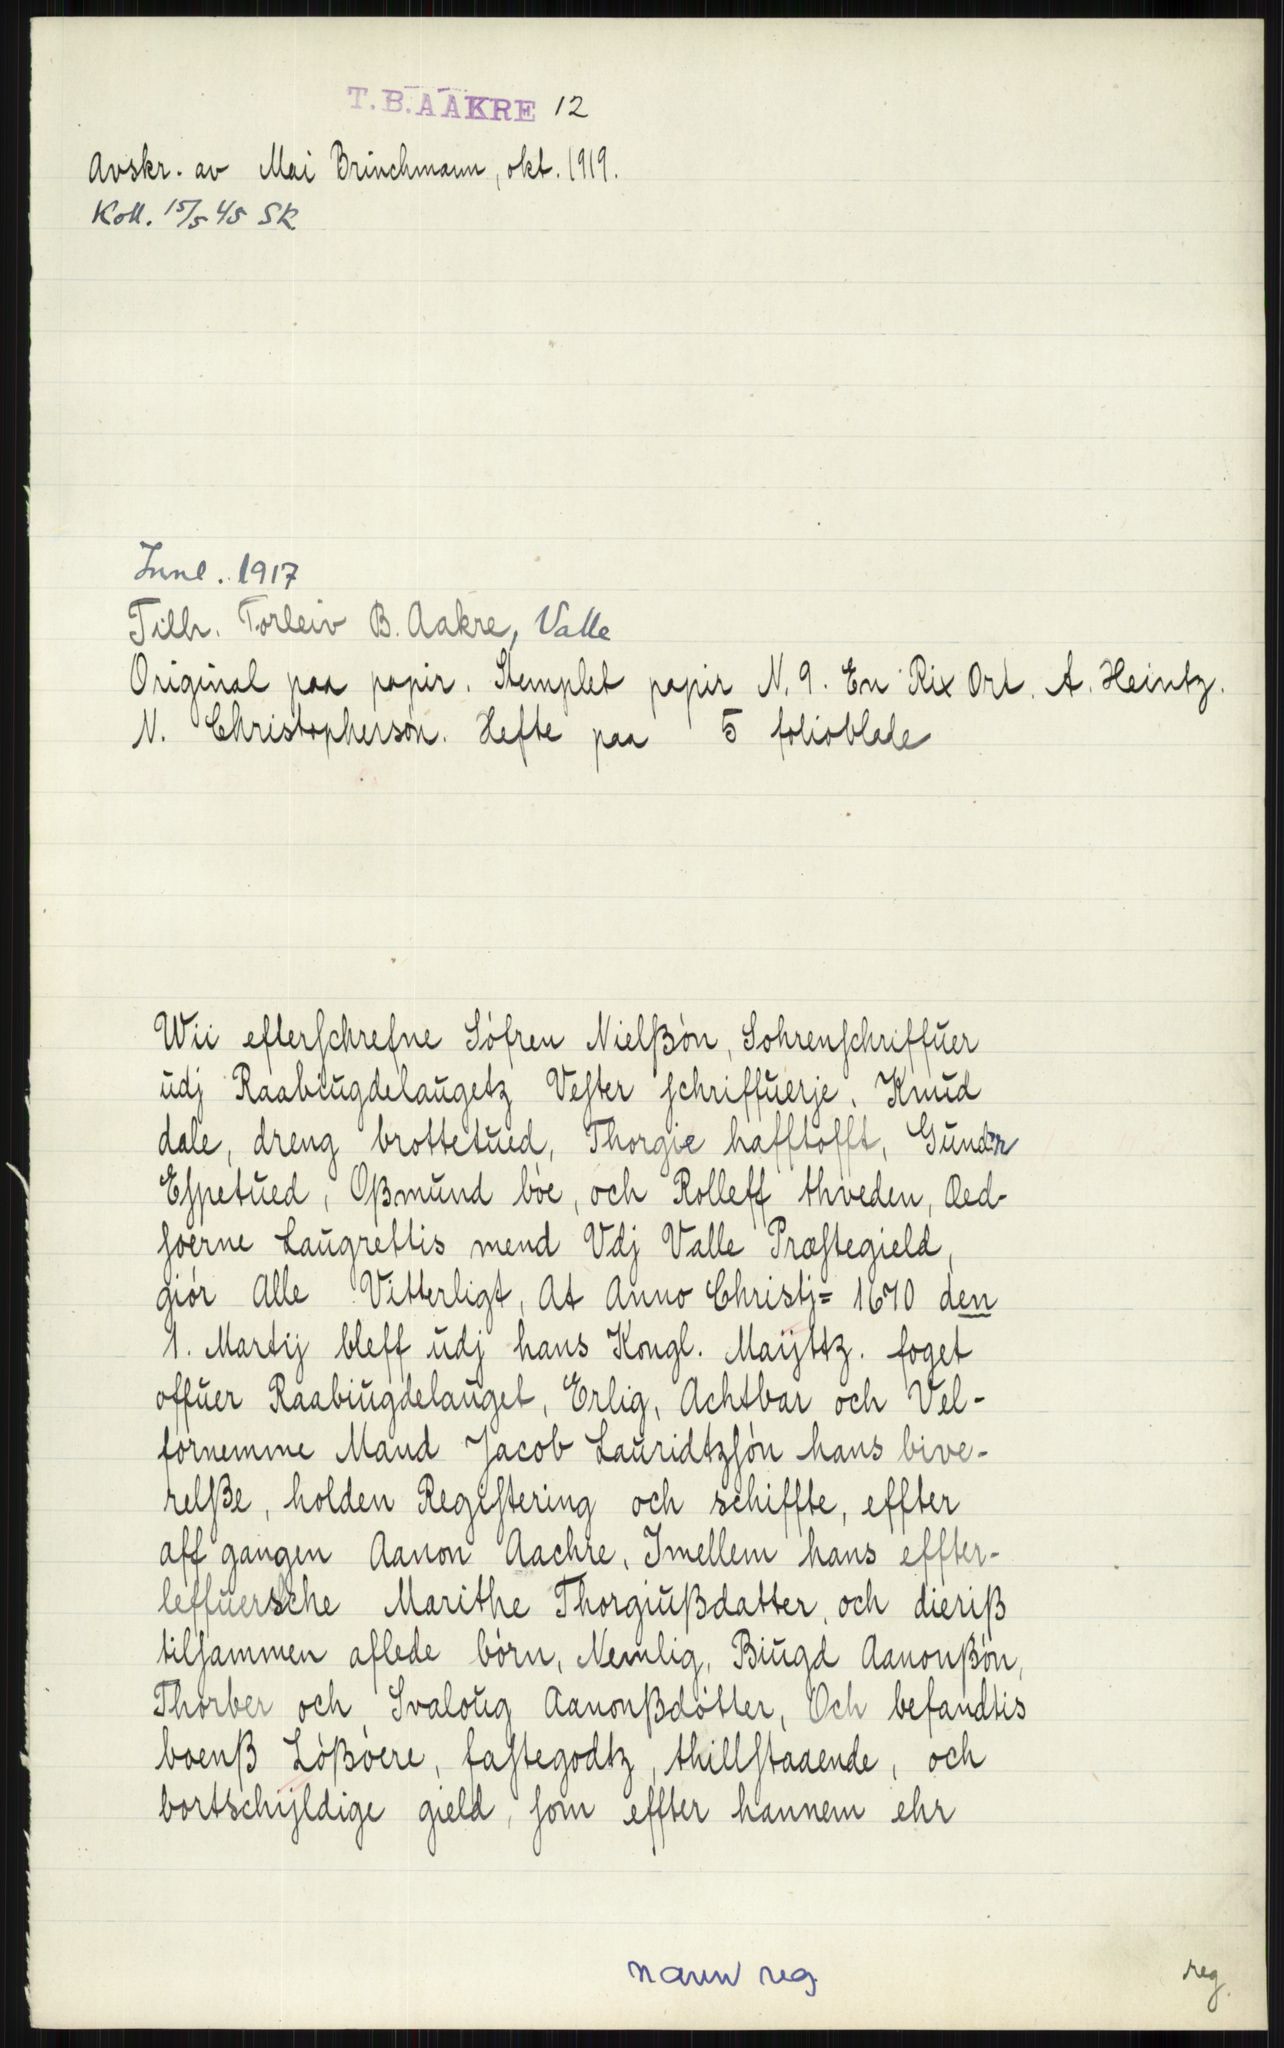 T. B. AAKRE 12
Avskr. av Mai Brinchmann, okt. 1919.
Koll. 15/5 45 SK
Innl. 1917
Tilh. Torleiv B. Aakre, Valle
Original paa papir. Stemplet papir N. 9. En Rix Ort. A. Heintz.
N. Christopherson. Hefte paa 5 folioblade
Wii efterschrefne Söfren Nielßön, Sohrenschriffuer
udj Raabiugdelaugetz Vester schriffuerje, Knud
dale, dreng brottetued, Thorgie hafftofft, Gunder
Espetued, Oßmund böe, och Rolleff thveden, Aed-
soerne Laugrettis mend Vdj Valle Præstegield,
giör Alle Vitterligt, At Anno Christj= 1670 den
1. Martij bleff udj hans Kongl. Maÿttz. foget
offuer Raabiugdelauget, Erlig, Achtbar och Vel-
fornemme Mand Jacob Lauridtzsön hans bive-
relße, holden Registering och schiffte, effter
aff gangen Aanon Aachre, Imellem hans effter-
leffuersche Marithe Thorgiußdatter, och dieriß
tilsammen aflede börn, Nemlig, Biugd Aanonßön,
Thorber och Svaloug Aanonßdötter, Och befandtis
boenß Lößöere, fastegodtz, thillstaaende, och
bortschÿldige gield, som effter hannem ehr
navn reg
reg.